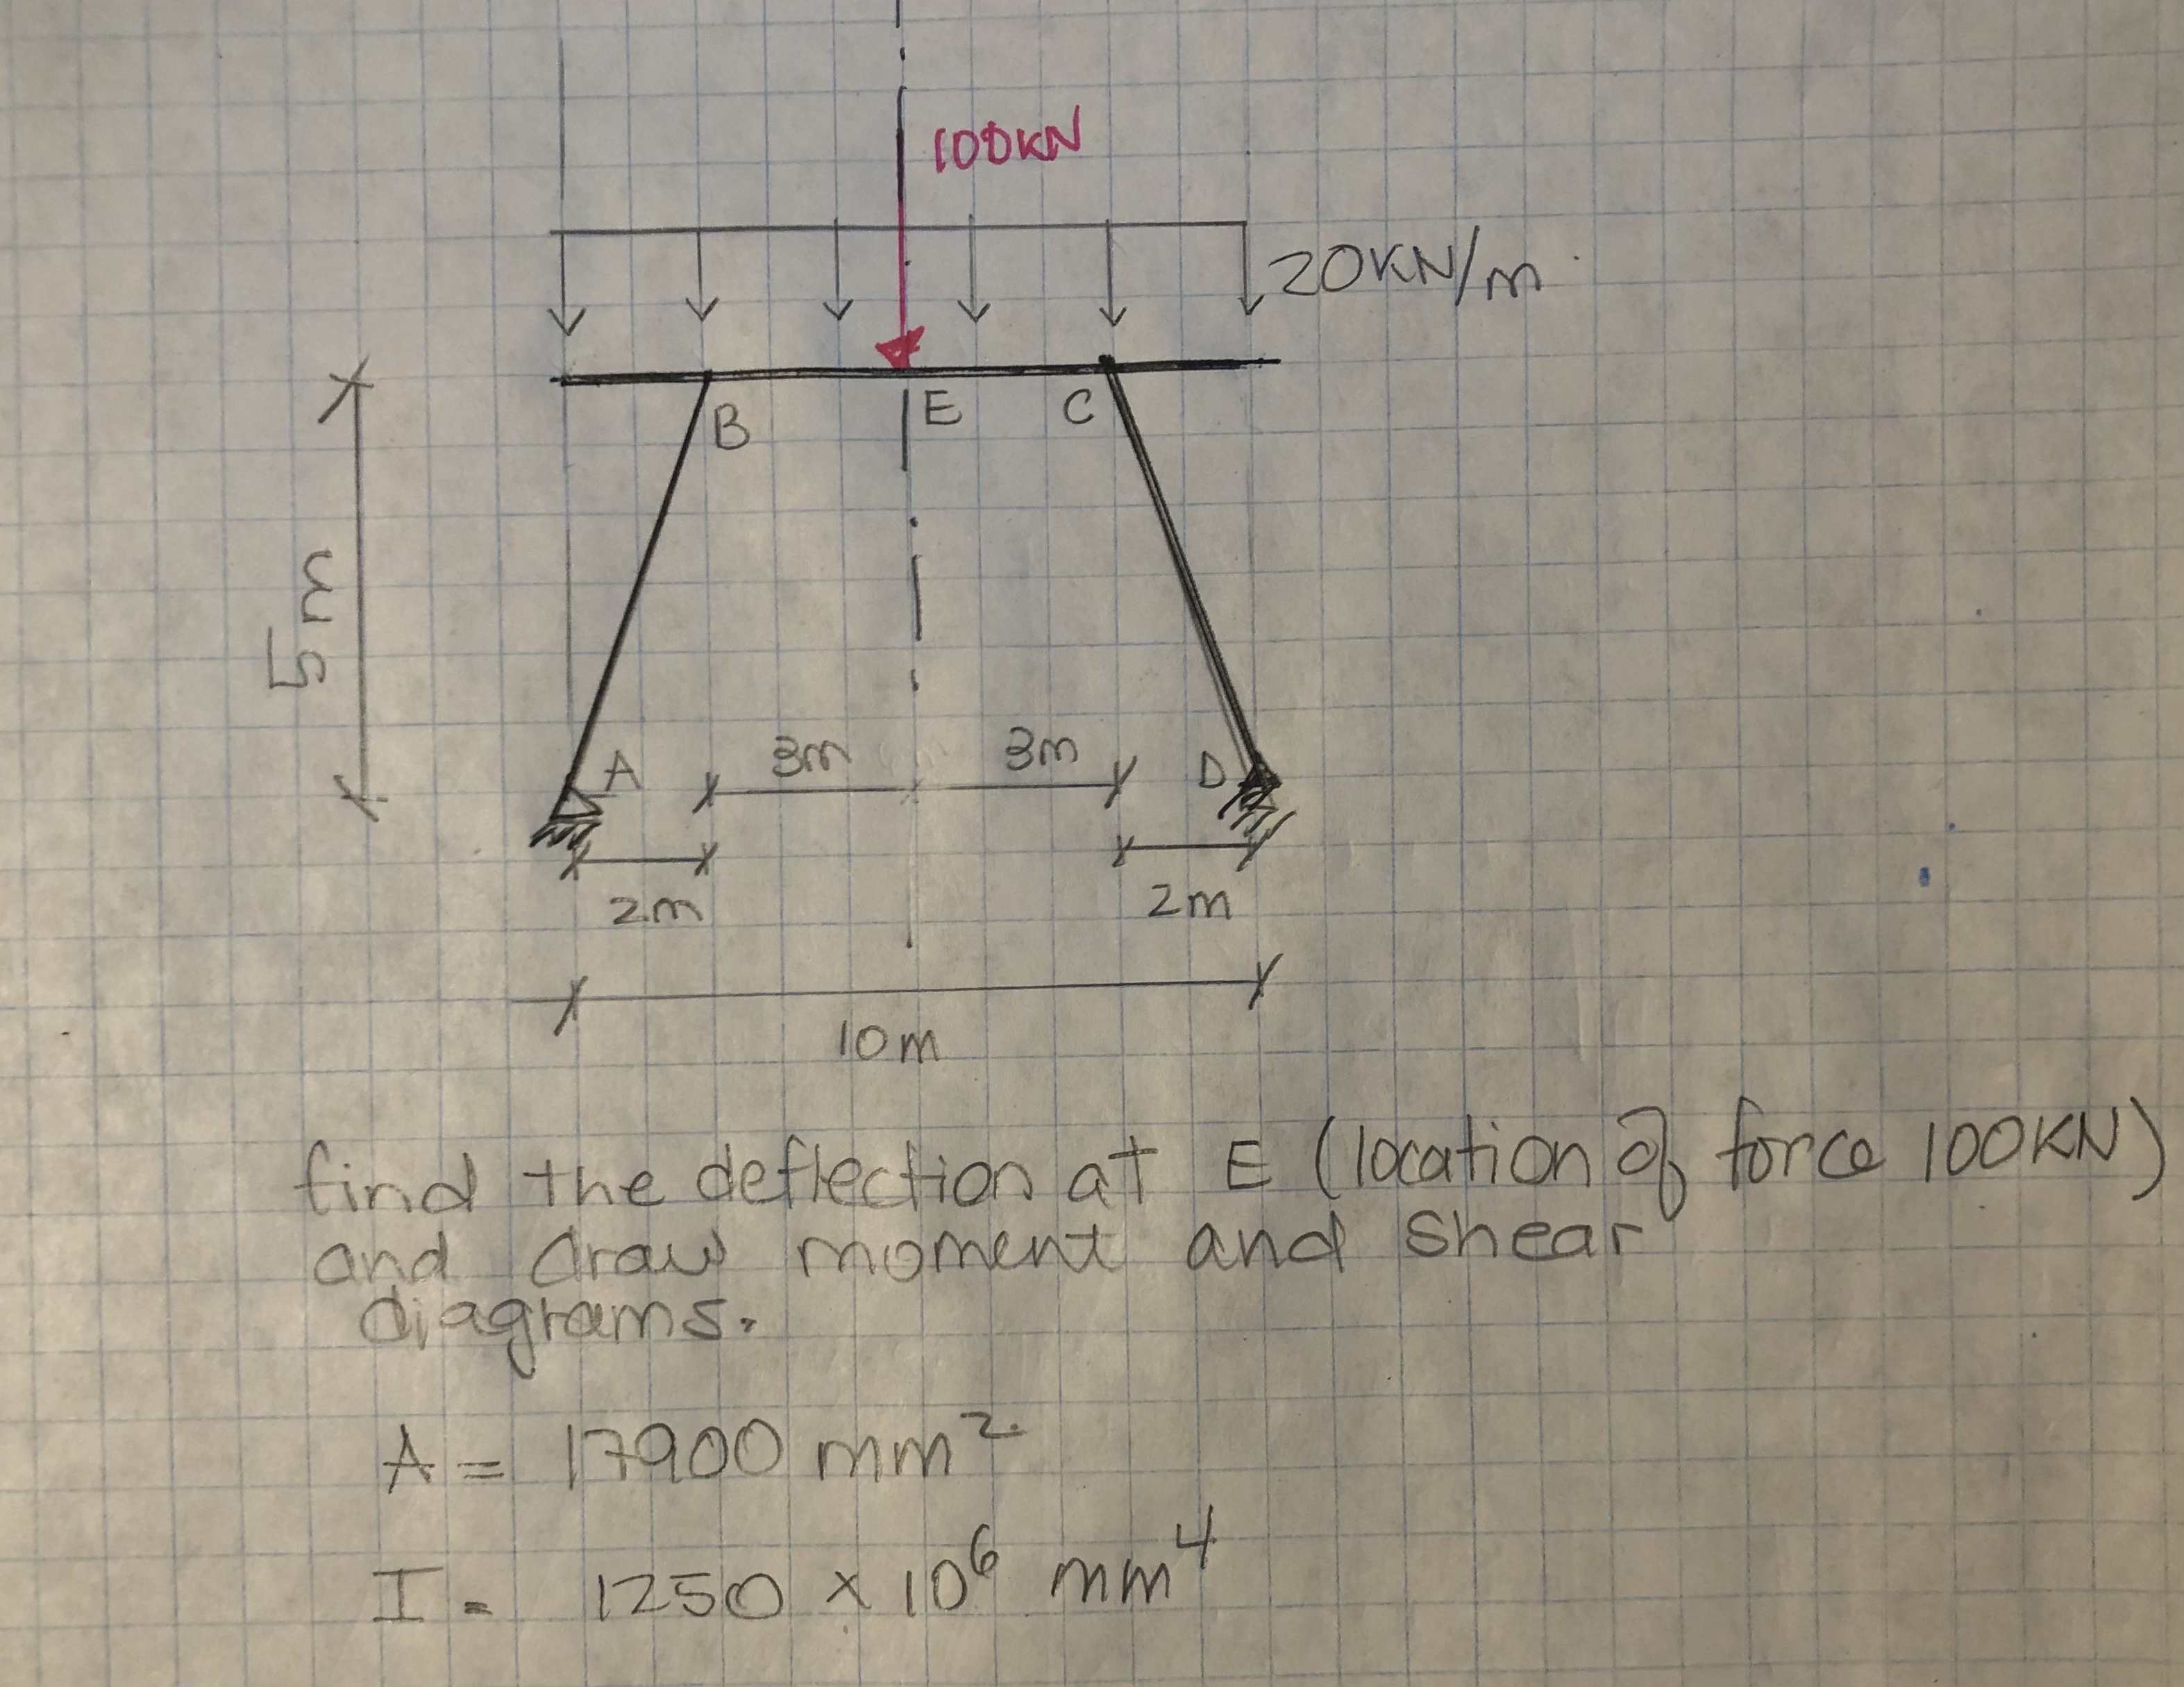 100KN
20KN/m
B
E
C
5m
A
3m
3m
D
2m
2m
10m
find the deflection at E (location of force 100KN)
and draw moment and shear
diagrams.
A = 17900 mm²
I = 1250 × 10⁶ mm⁴